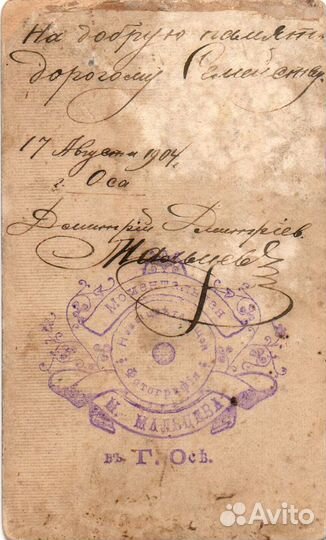 На добрую память
дорогому Семейству
17 Августа 1904 г.
г. Оса
Дмитрій Дмитріев.
Мальцев
Моментальная
Фотографія
Н. МАЛЬЦЕВА
въ Г. Осѣ.
Avito